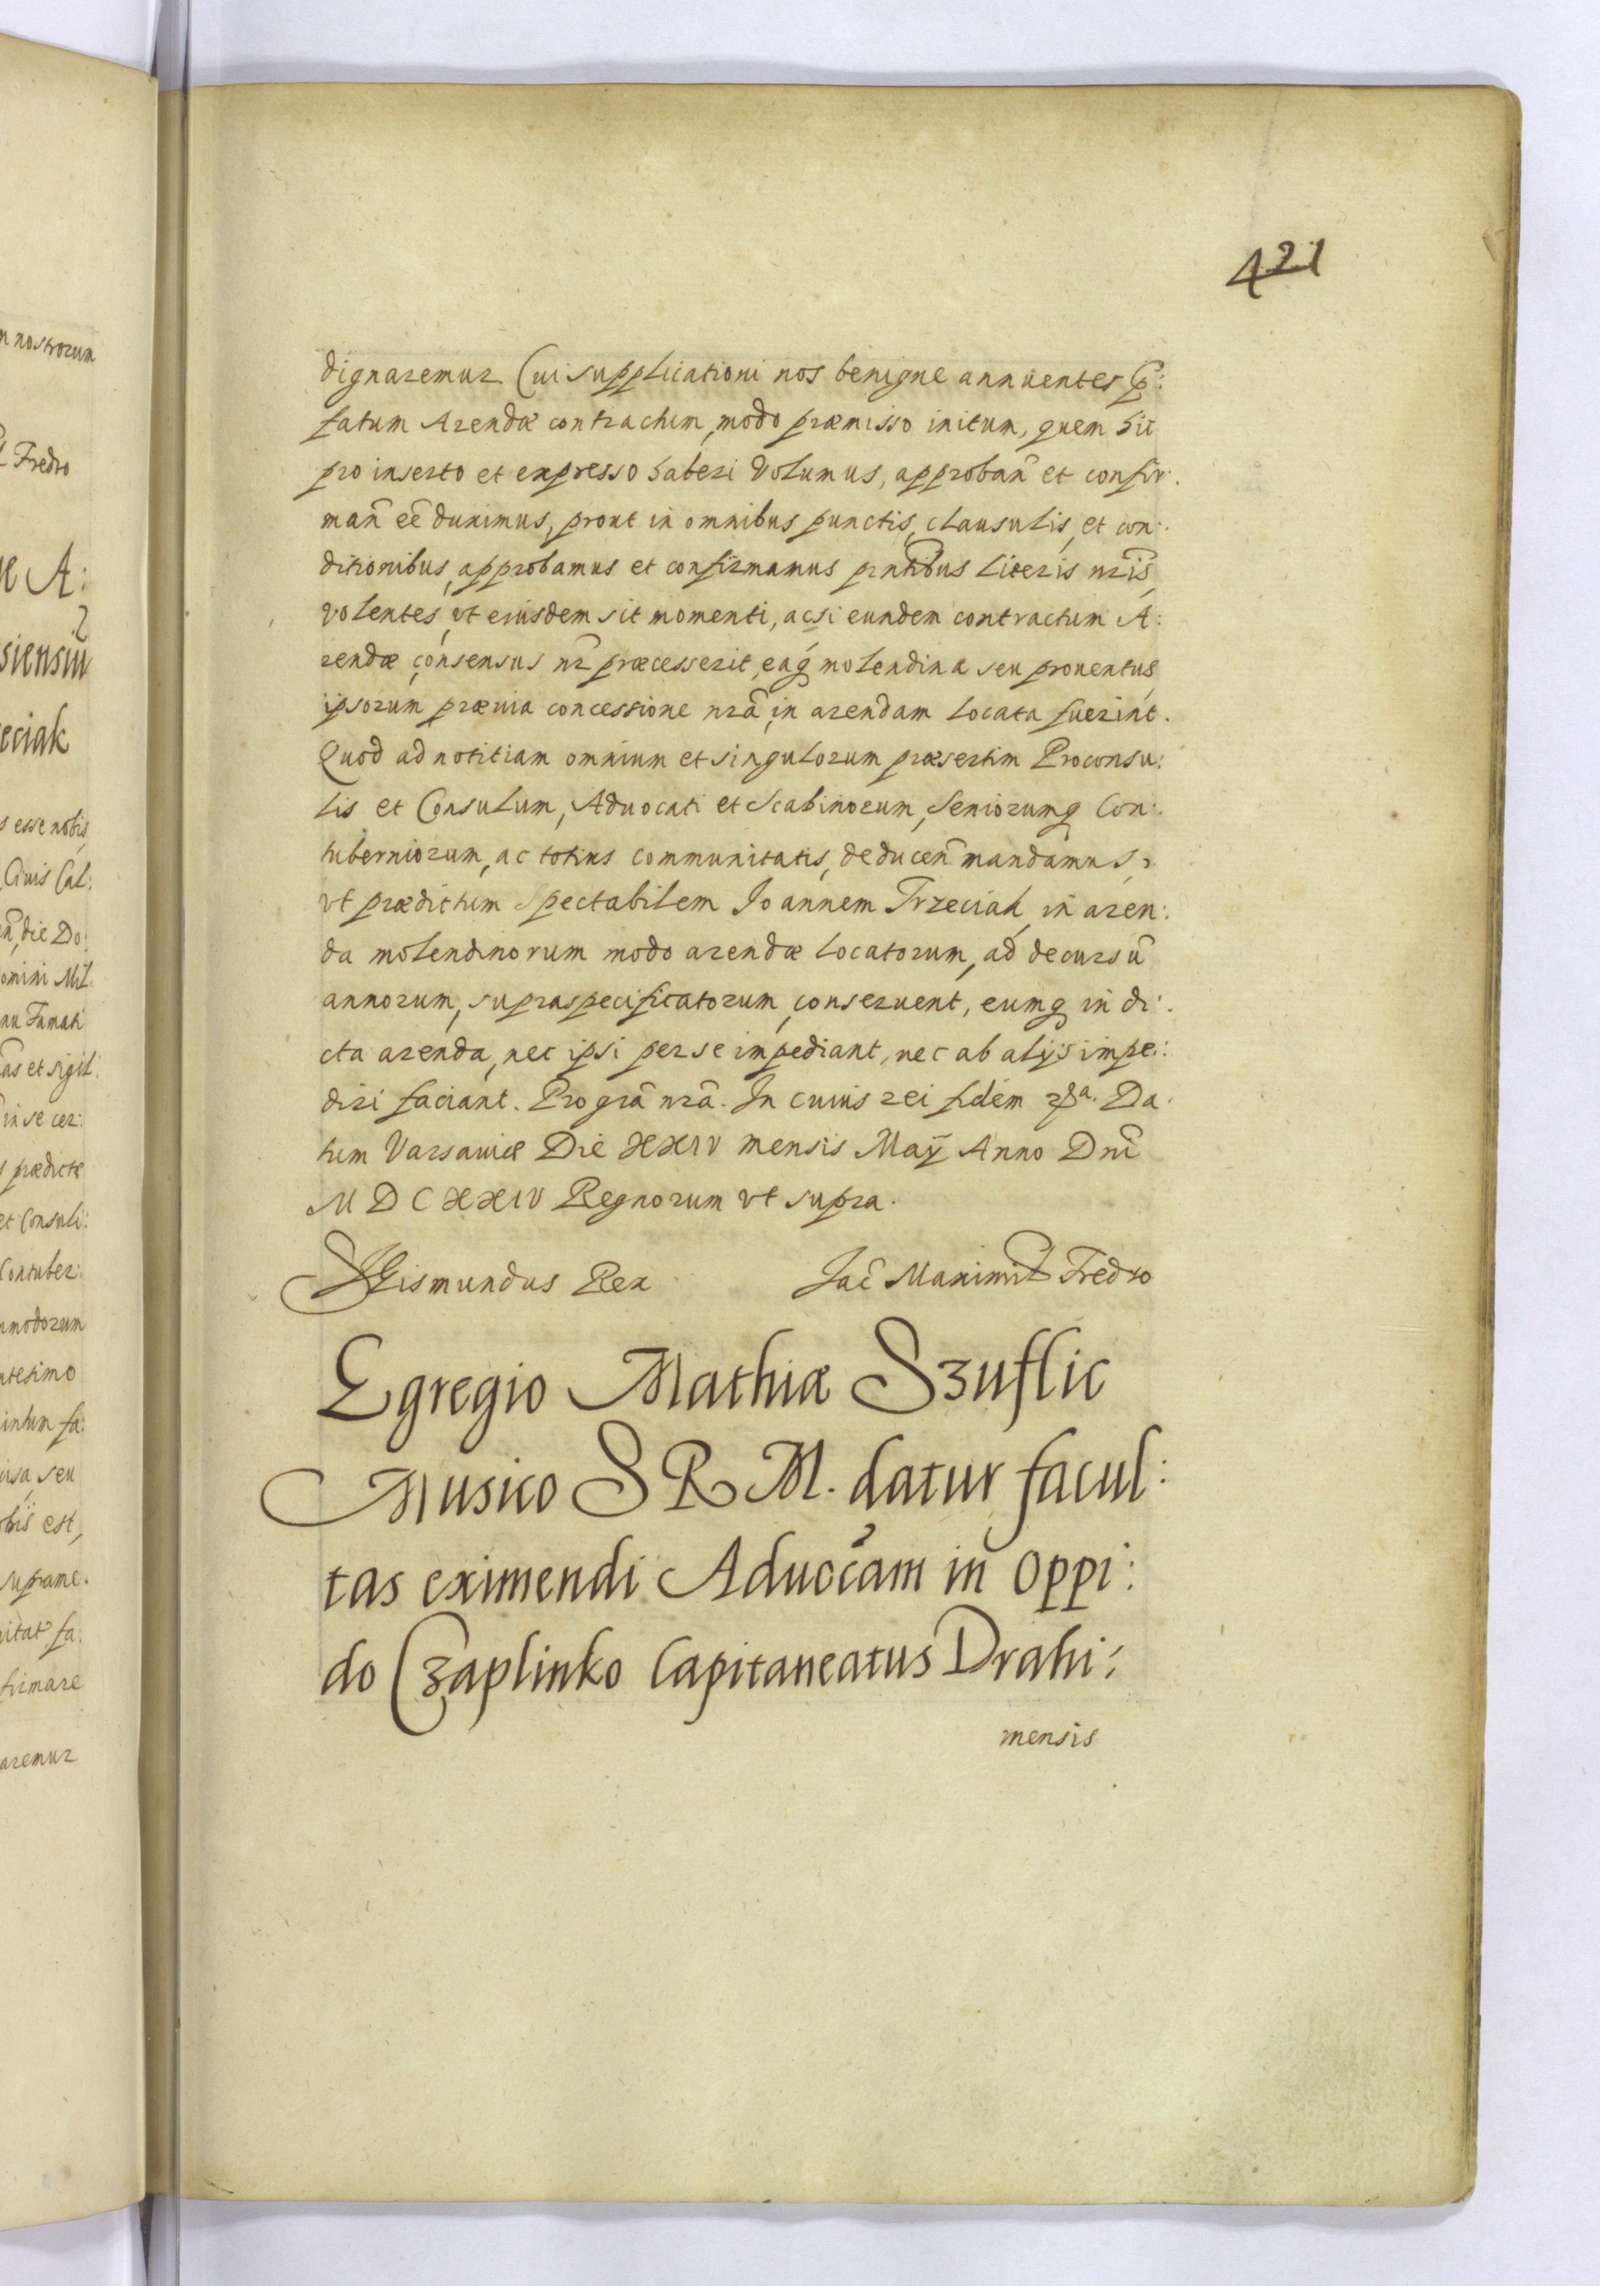 421
dignaremur Cui supplicationi nos benigne annuentes p̃:
fatum Arendæ contractum, modo præmisso initum, quem hic
pro inserto et expresso haberi Volumus, approban̄ et confir:
man̄ eē duximus, prout in omnibus punctis, clausulis, et con:
ditionibus, approbamus et confirmamus pn̄tibus Literis nr̄is,
volentes, vt eiusdem sit momenti, acsi eundem contractum A:
rendæ, consensus nr̄ præcesserit, eaq́ molendina seu prouentus
ipsorum præuia concessione nrā, in arendam locata fuerint.
Quod ad notitiam omnium et singulorum præsertim Proconsu:
lis et Consulum, Aduocati et Scabinorum, Seniorumq Con:
tuberniorum, ac totius communitatis, deducen̄ mandamus,
vt prædictum Spectabilem Joannem Trzeciak, in aren:
da molendinorum modo arendæ locatorum, ad decursū
annorum, supraspecificatorum, conseruent, eumq in di:
cta arenda, nec ipsi per se impediant, nec ab alijs impe:
diri faciant. Pro grā nrā. In cuius rei fidem Da
tum Varsauiæ Die XXIV mensis Maÿ Anno Dnī
MDCXXIV Regnorum vt supra.
Sigismundus Rex Jac̄ Maximil Fredro
Egregio Mathiæ Szuflic
Musico S R M. datur facul:
tas eximendi Aduoc̃am in Oppi:
do Czaplinko Capitaneatus Drahi:
mensis
n nostrorum
Fredro
æ A:
siensiū
eciak
s esse nobis,
Ciuis Cal:
die Do:
omini Mil
au Famati
as et sigil:
in se cer:
s prædicte
et Consuli:
Contuber:
mmodorum
ntesimo
initum fa:
uisa, seu
est,
suprame.
fa:
firmare
aremur